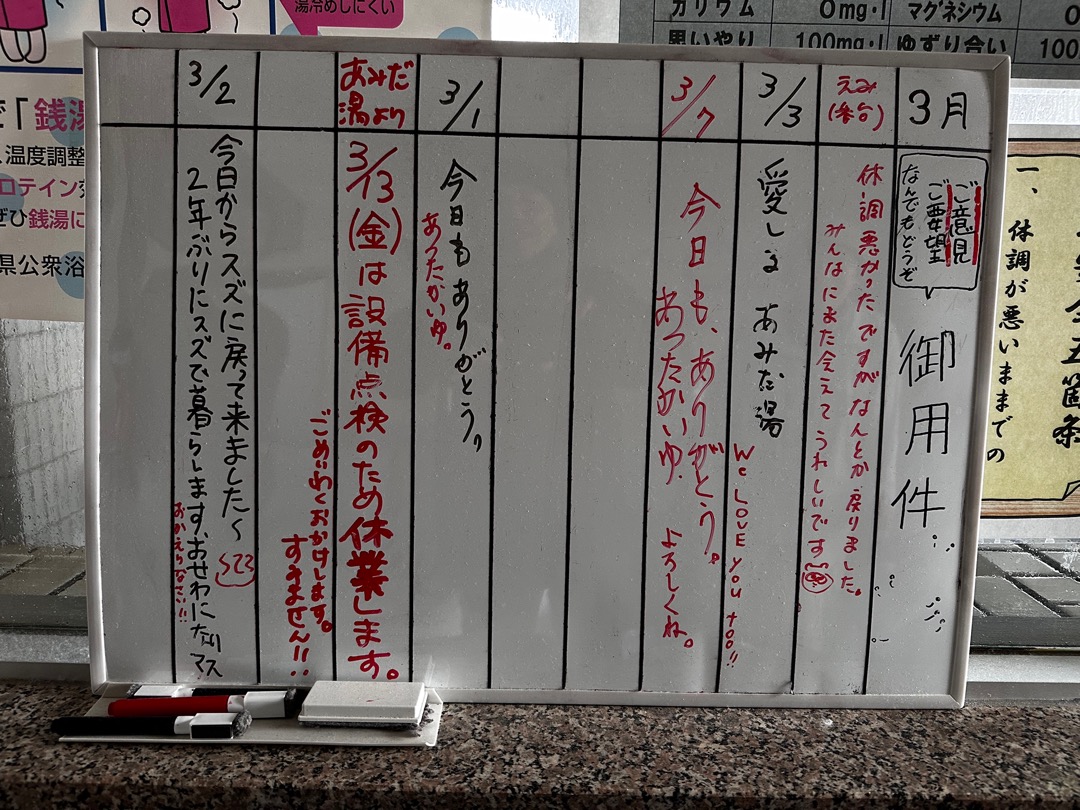 3月
ご意見
ご要望
なんでもどうぞ
御用件
えみ
(番台)
体調悪かったですがなんとか戻りました。
みんなにまた会えてうれしいです
3/3
愛しる あみだ湯
We LOVE you too!!
3/7
今日も、ありがとう。
あったかいゆ
よろしくね。
3/1
今日もありがとう。
あったかいゆ。
あみだ
湯より
3/13(金)は設備点検のため休業します。
ごめいわくおかけします。
すみません!!
3/2
今日からスズに戻って来ました～
2年ぶりにスズで暮らします、おせわになりマス
おかえりなさい!!
湯冷めしにくい
カリウム 0mg
マグネシウム
思いやり 100mg
ゆずり合い 100
一、体調が悪いままでの
「銭湯
温度調整
ロテイン
ぜひ銭湯に
県公衆浴